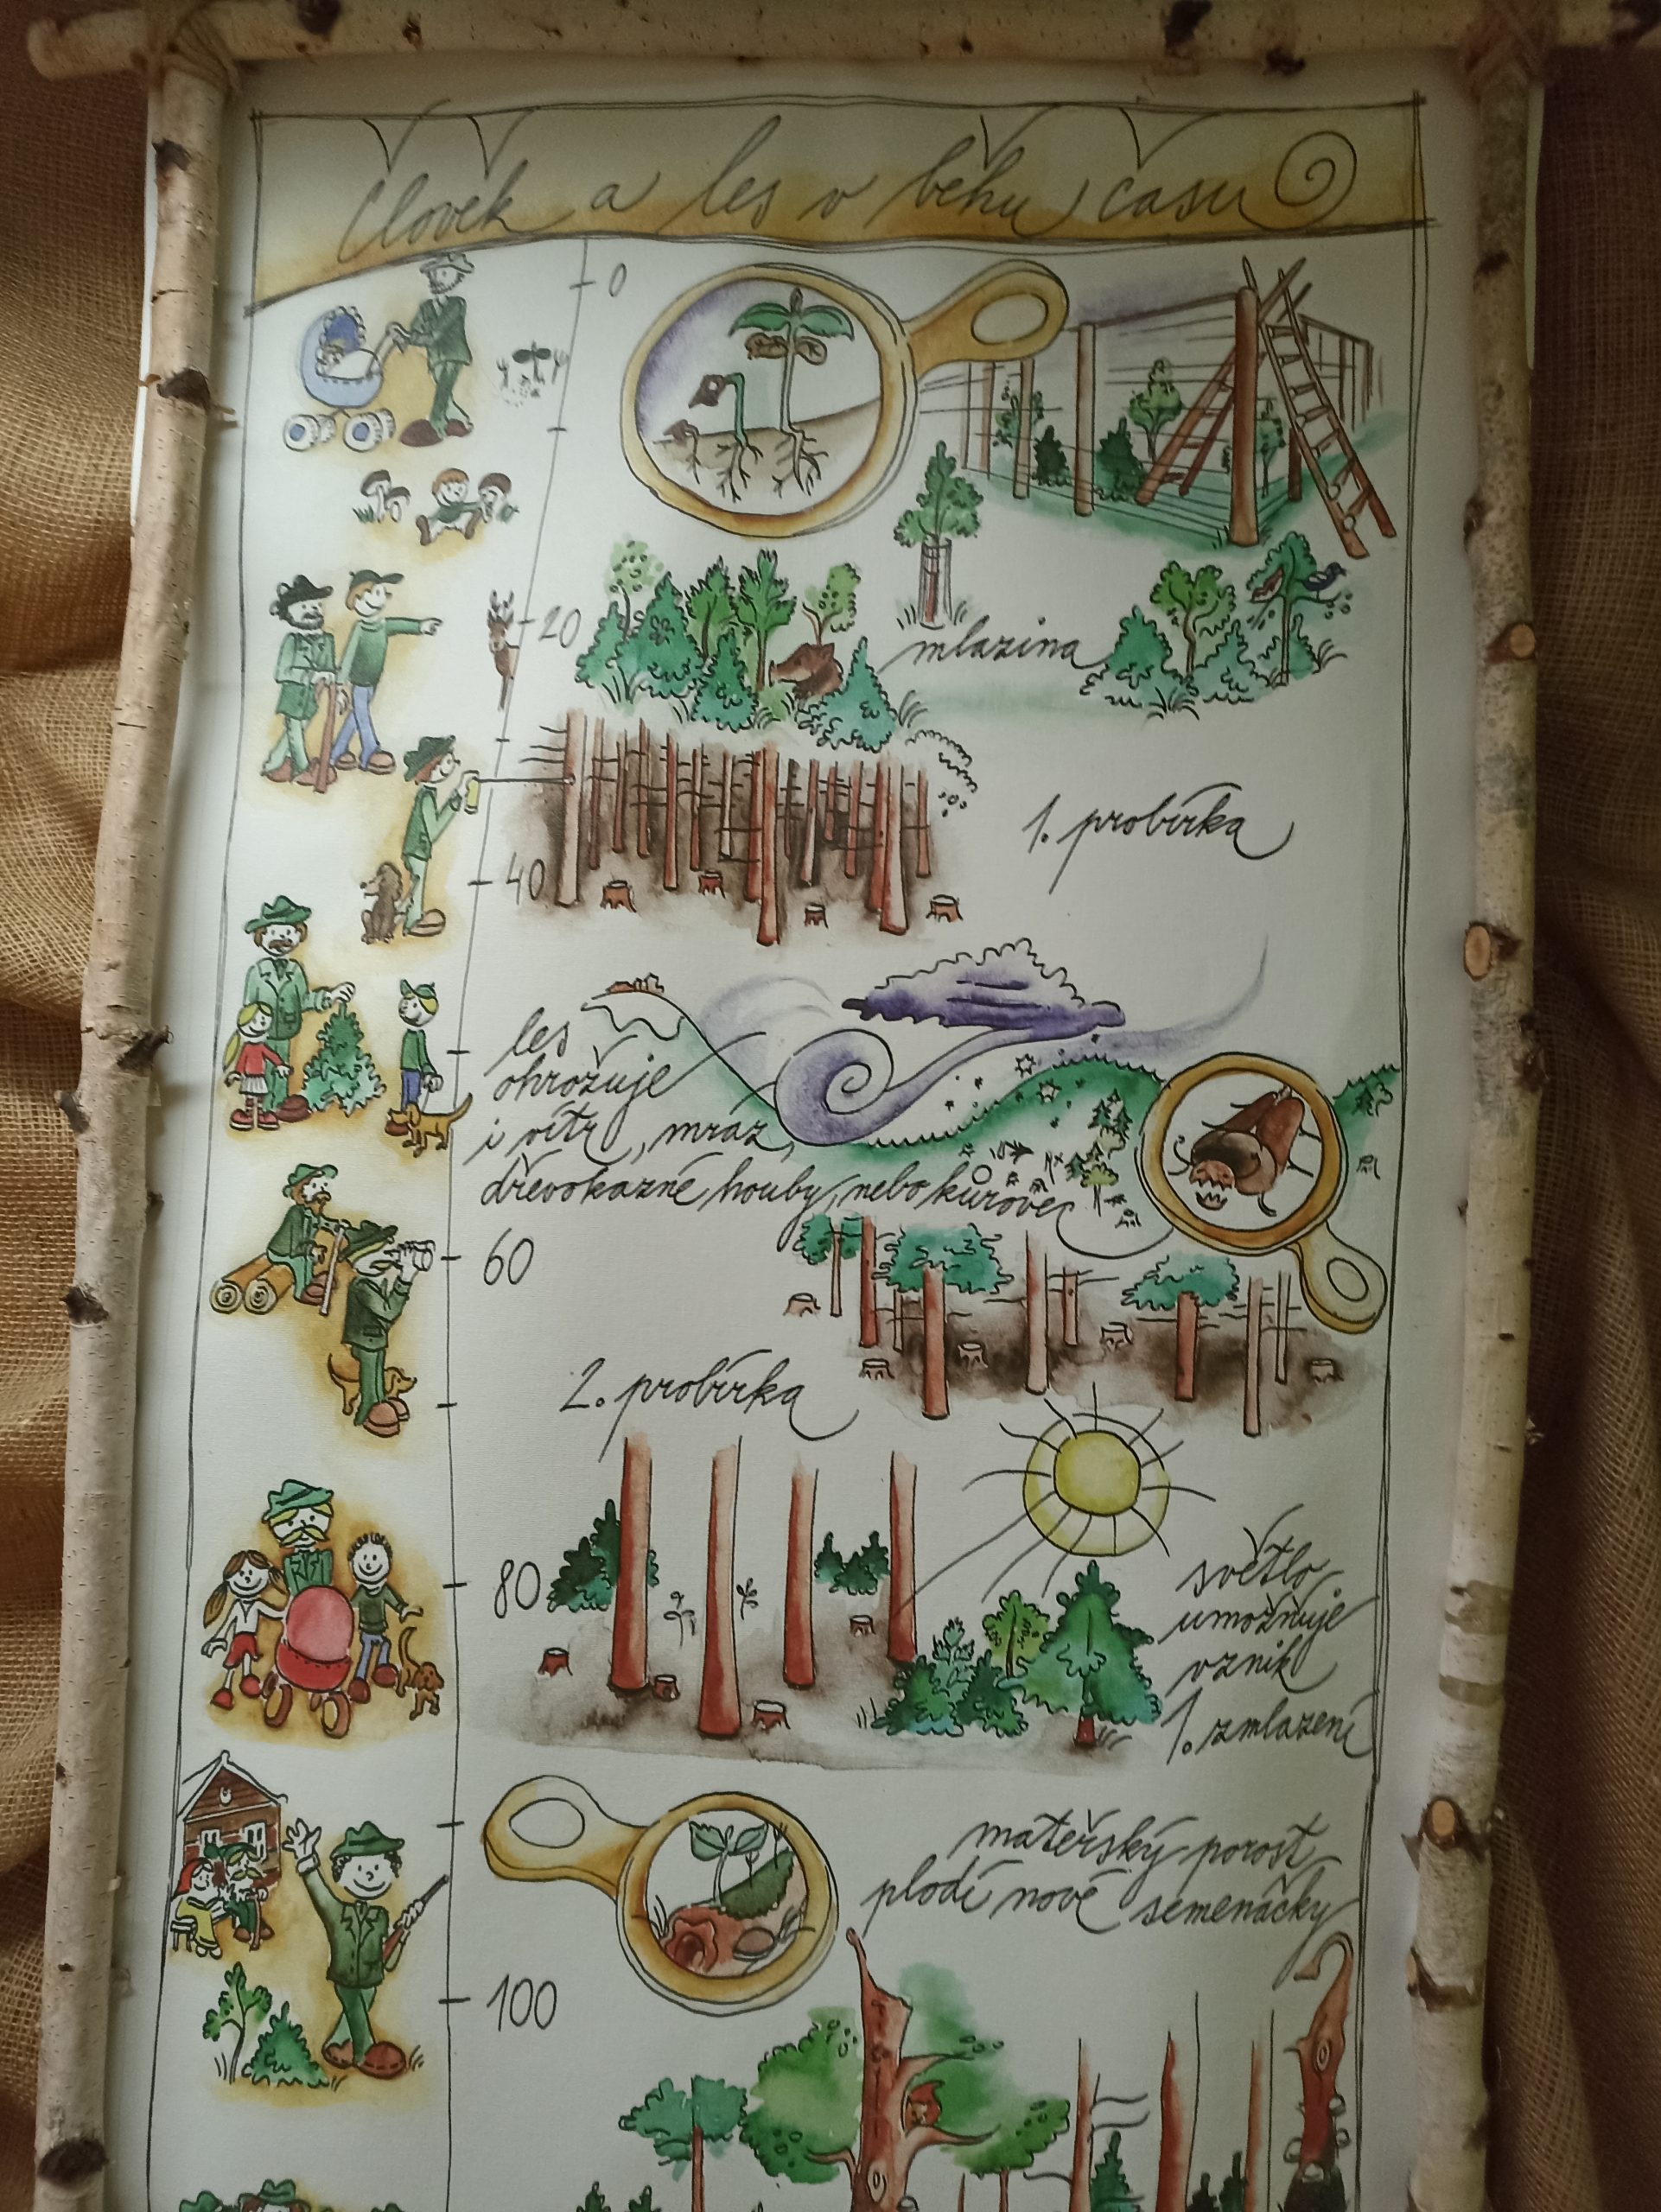 Člověk a les v běhu času
0
20
mlazina
1. probírka
40
les
ohrožuje
i vítr, mráz,
dřevokazné houby, nebo kůrovec
60
2. probírka
80
světlo
umožňuje
vznik
1. zmlazení
mateřský porost
plodí nové semenáčky
100